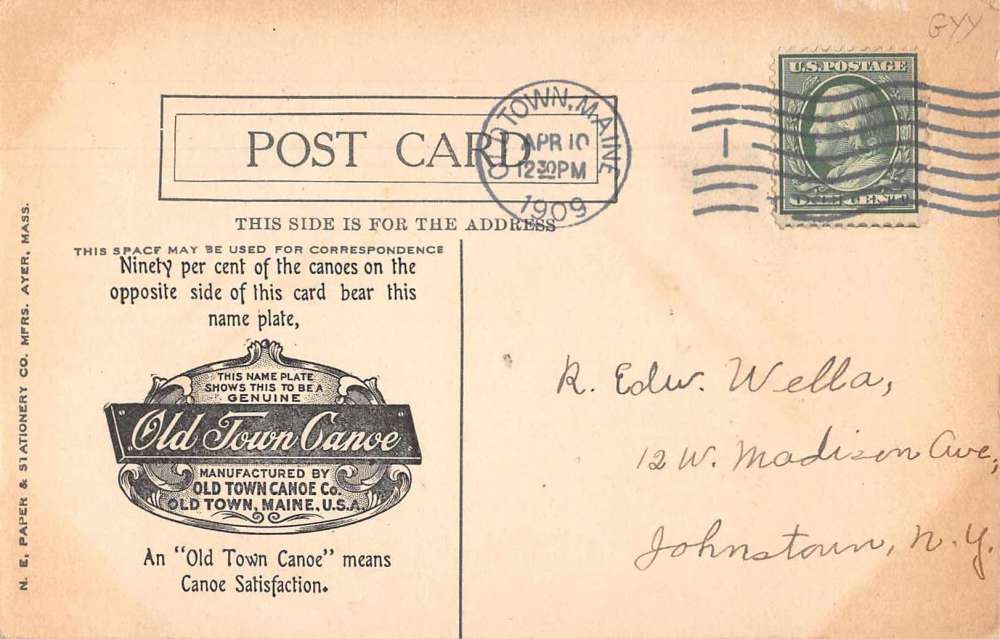 GYY
U.S. POSTAGE
OLD TOWN, MAINE
APR 10
12 30 PM
1909
1
POST CARD
THIS SIDE IS FOR THE ADDRESS
THIS SPACE MAY BE USED FOR CORRESPONDENCE
Ninety per cent of the canoes on the
opposite side of this card bear this
name plate,
THIS NAME PLATE
SHOWS THIS TO BE A
GENUINE
"Old Town Canoe"
MANUFACTURED BY
OLD TOWN CANOE Co.
OLD TOWN, MAINE, U.S.A.
An "Old Town Canoe" means
Canoe Satisfaction.
N. E. PAPER & STATIONERY CO. MFRS. AYER, MASS.
R. Edw. Wella,
12 W. Madison Ave,
Johnstown, N.Y.